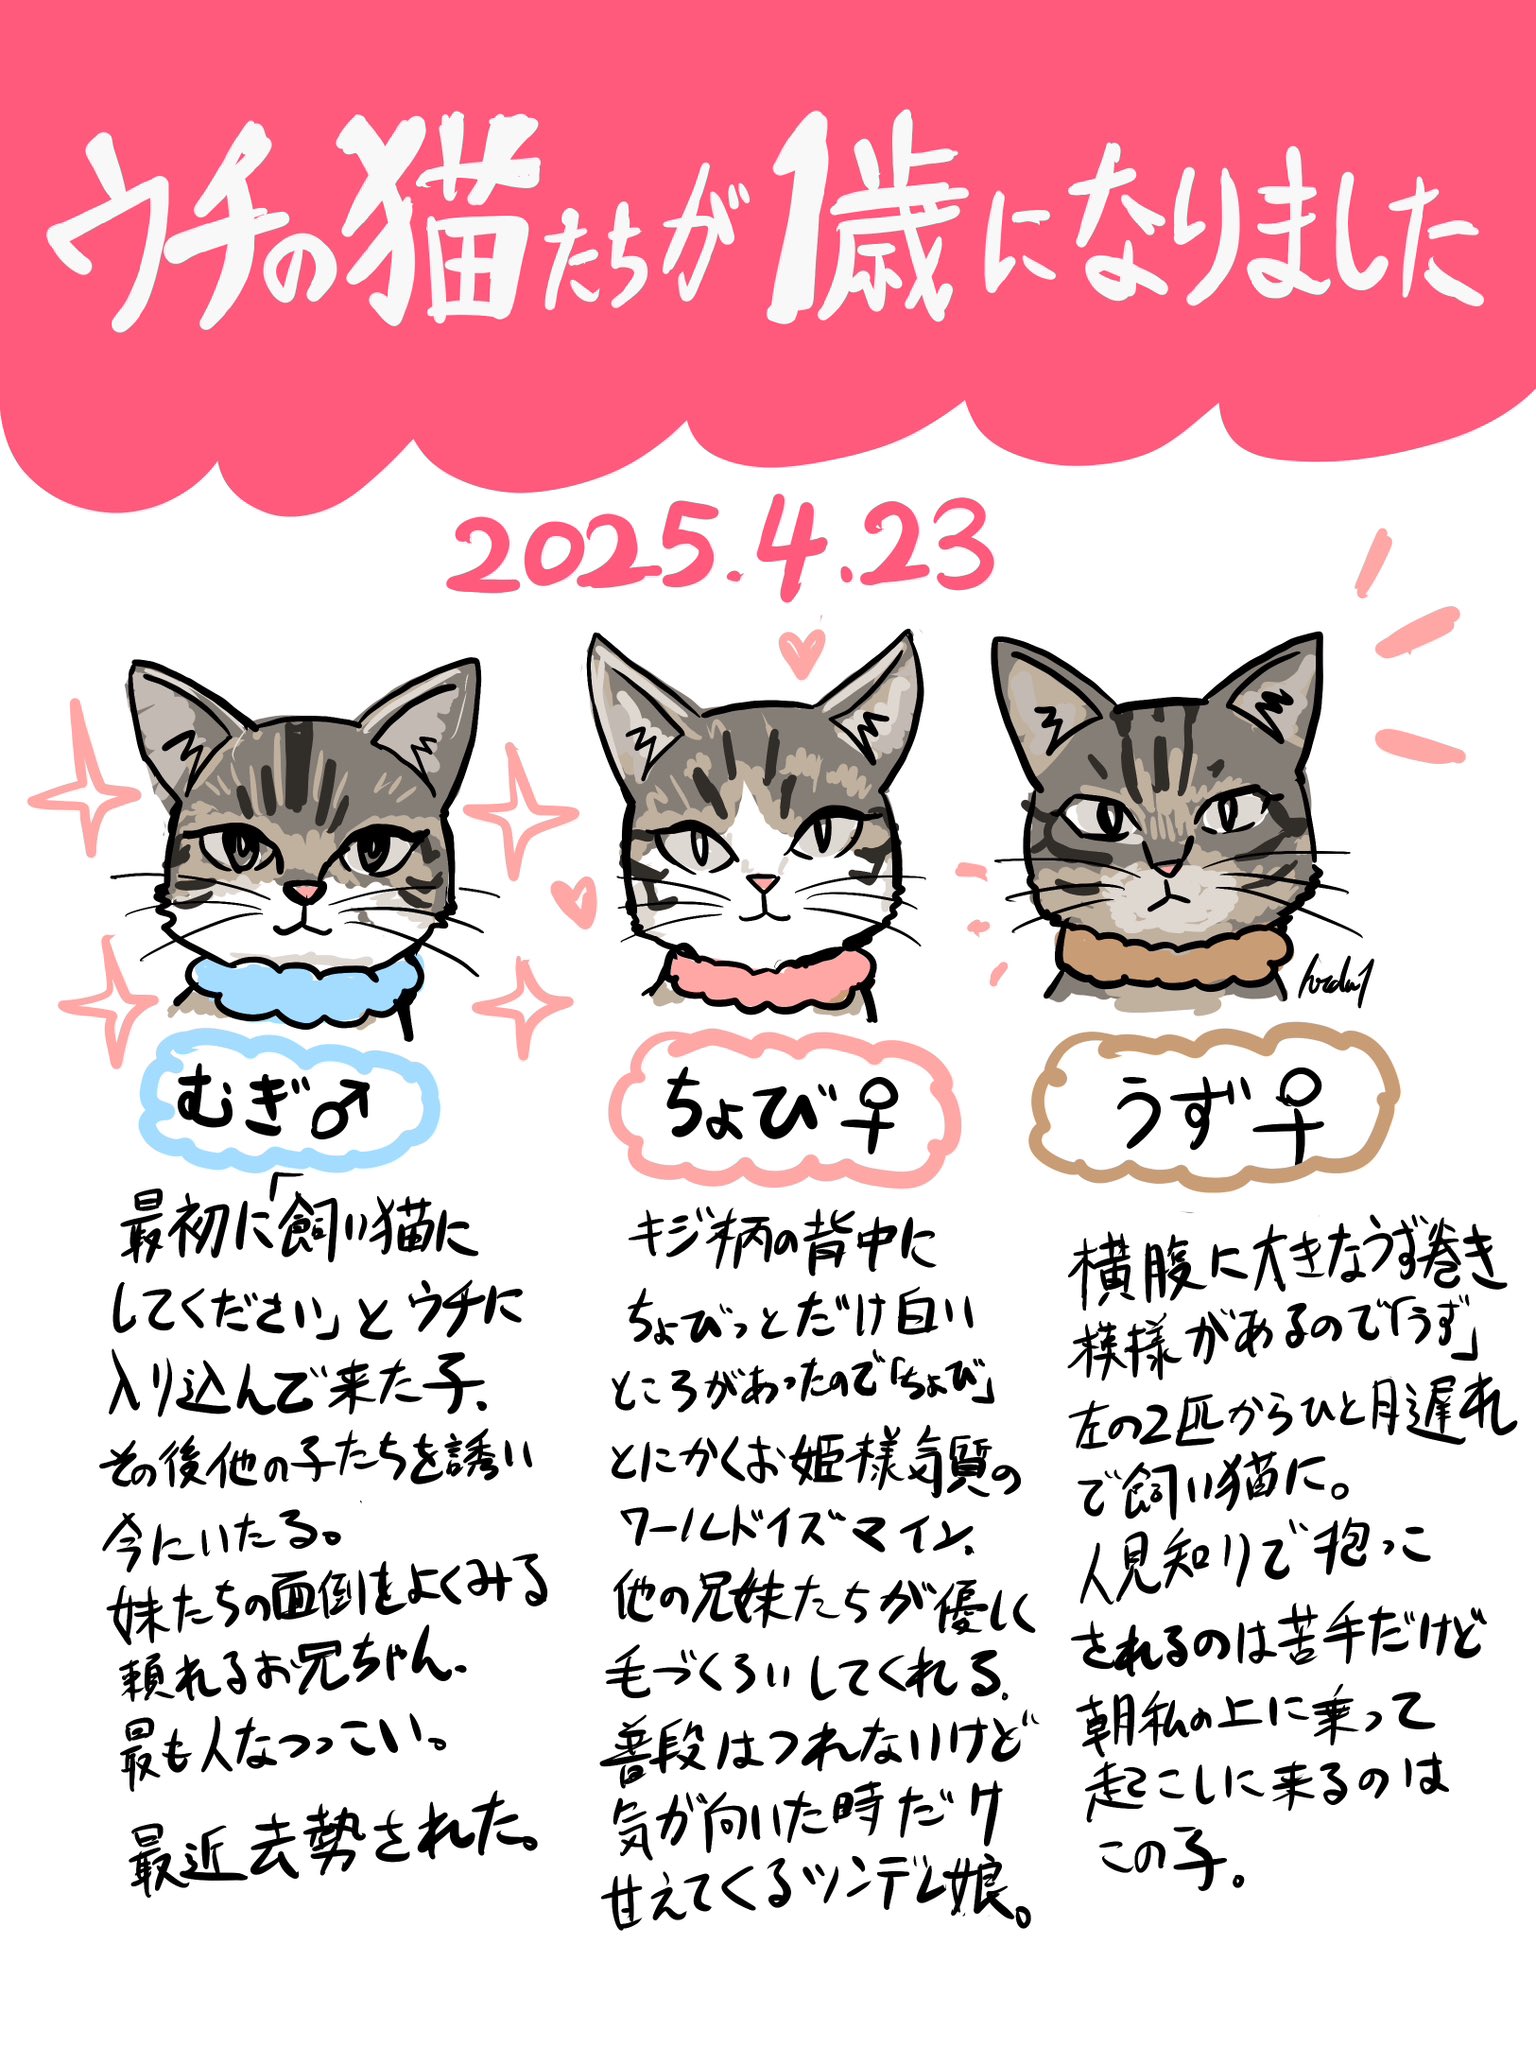 ウチの猫たちが1歳になりました
2025.4.23
むぎ♂
最初に「飼い猫に
してください」とウチに
入り込んで来た子、
その後他の子たちを誘い
今にいたる。
妹たちの面倒をよくみる
頼れるお兄ちゃん、
最も人なつっこい。
最近去勢された。
ちょび♀
キジ柄の背中に
ちょびっとだけ白い
ところがあったので「ちょび」
とにかくお姫様気質の
ワールドイズマイン、
他の兄妹たちが優しく
毛づくろいしてくれる、
普段はつれないけど
気が向いた時だけ
甘えてくるツンデレ娘。
うず♀
横腹に大きなうず巻き
模様があるので「うず」
左の2匹からひと月遅れ
で飼い猫に。
人見知りで抱っこ
されるのは苦手だけど
朝私の上に乗って
起こしに来るのは
この子。